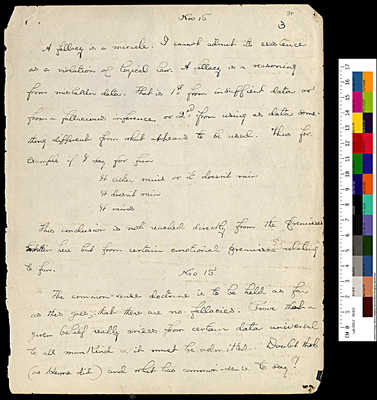 Nov 15
3
A fallacy is a miracle. I cannot admit its existence
as a violation of logical law. A fallacy is a reasoning
from mistaken data. That is 1st from insufficient data or
from a pretended inference, or 2d from using as data some-
thing different from what appears to be used. Thus for
example if I say for fun
It either rains or it doesn't rain
It doesn't rain
It rains
This conclusion is not reached directly from the premisses
here but from certain emotional premisses relating
to fun.
Nov 15
The common-sense doctrine is to be held as far
as this goes; that there are no fallacies. Prove that a
given belief really arises from certain data universal
to all mankind &amp; it must be admitted. Doubt that
(as Hume did) and what has common sense to say?